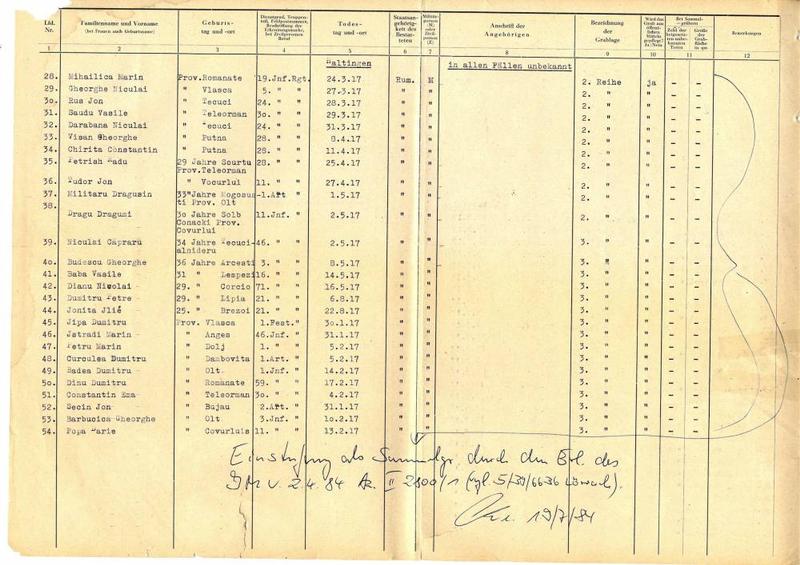 Lfd. Nr. Familienname und Vorname (bei Frauen auch Geburtsname) Geburts- tag und -ort Todes- tag und -ort Anschrift der Angehörigen Bezeichnung der Grablage Bemerkungen
1 2 3 4 5 6 7 8 9 10 11 12
Baltingen in allen Fällen unbekannt
28. Mihailica Marin Prov.Romanate 19.Jnf.Rgt. 24.3.17 Rum. M 2. Reihe ja - -
29. Gheorghe Niculai " Vlasca 5. " " 27.3.17 " " 2. " " - -
30. Rus Jon " Tecuci 24. " " 28.3.17 " " 2. " " - -
31. Saudu Vasile " Teleorman 30. " " 29.3.17 " " 2. " " - -
32. Darabana Niculai " Tecuci 24. " " 31.3.17 " " 2. " " - -
33. Visan Gheorghe " Putna 28. " " 8.4.17 " " 2. " " - -
34. Chirita Constantin " Putna 28. " " 11.4.17 " " 2. " " - -
35. Petrish Radu 29 Jahre Scurtu 28. " " 25.4.17 " " 2. " " - -
Prov.Teleorman
36. Tudor Jon " Vocurlui 11. " " 27.4.17 " " 2. " " - -
37. Militaru Dragusin 33"Jahre Mogosu- 1.Art " 1.5.17 " " 2. " " - -
38. ti Prov. Olt
Dragu Dragumi 30 Jahre Solb 11.Jnf. " 2.5.17 " " 2. " " - -
Conacki Prov.
Covurlui
39. Niculai Capraru 34 Jahre Tecuci- 46. " " 2.5.17 " " 3. " " - -
alnideru
40. Budescu Gheorghe 36 Jahre Arcesti 3. " " 8.5.17 " " 3. " " - -
41. Baba Vasile 31 " Lespezi 16. " " 14.5.17 " " 3. " " - -
42. Dianu Nicolai 29. " Corcio 71. " " 16.5.17 " " 3. " " - -
43. Dumitru Petre 29. " Lipia 21. " " 6.8.17 " " 3. " " - -
44. Jonita Jlié 25. " Brezoi 21. " " 22.8.17 " " 3. " " - -
45. Jipa Dumitru Prov. Vlasca 1.Fest." " 30.1.17 " " 3. " " - -
46. Jstradi Marin " Anges 46.Jnf. " 31.1.17 " " 3. " " - -
47. Petru Marin " Dolj 1. " " 5.2.17 " " 3. " " - -
48. Curculea Dumitru " Dambovita 1.Art. " 5.2.17 " " 3. " " - -
49. Badea Dumitru " Olt 1.Jnf. " 14.2.17 " " 3. " " - -
50. Dinu Dumitru " Romanate 59. " " 17.2.17 " " 3. " " - -
51. Constantin Ema " Teleorman 30. " 4.2.17 " " 3. " " - -
52. Secin Jon " Bujau 2.Art. " 31.1.17 " " 3. " " - -
53. Barbucica Gheorghe " Olt 3.Jnf. " 10.2.17 " " 3. " " - -
54. Popa Marie " Covurluis 11. " " 13.2.17 " " 3. " " - -
Einstufung als Sammelgr. durch den Erl. des
IM v. 2.4.84 Az. II 2800/1 (vgl. 5/39/6636 Lörrach).
19/7/84